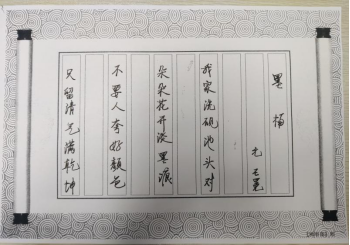 墨梅
元 王冕
我家洗砚池头树
朵朵花开淡墨痕
不要人夸好颜色
只留清气满乾坤